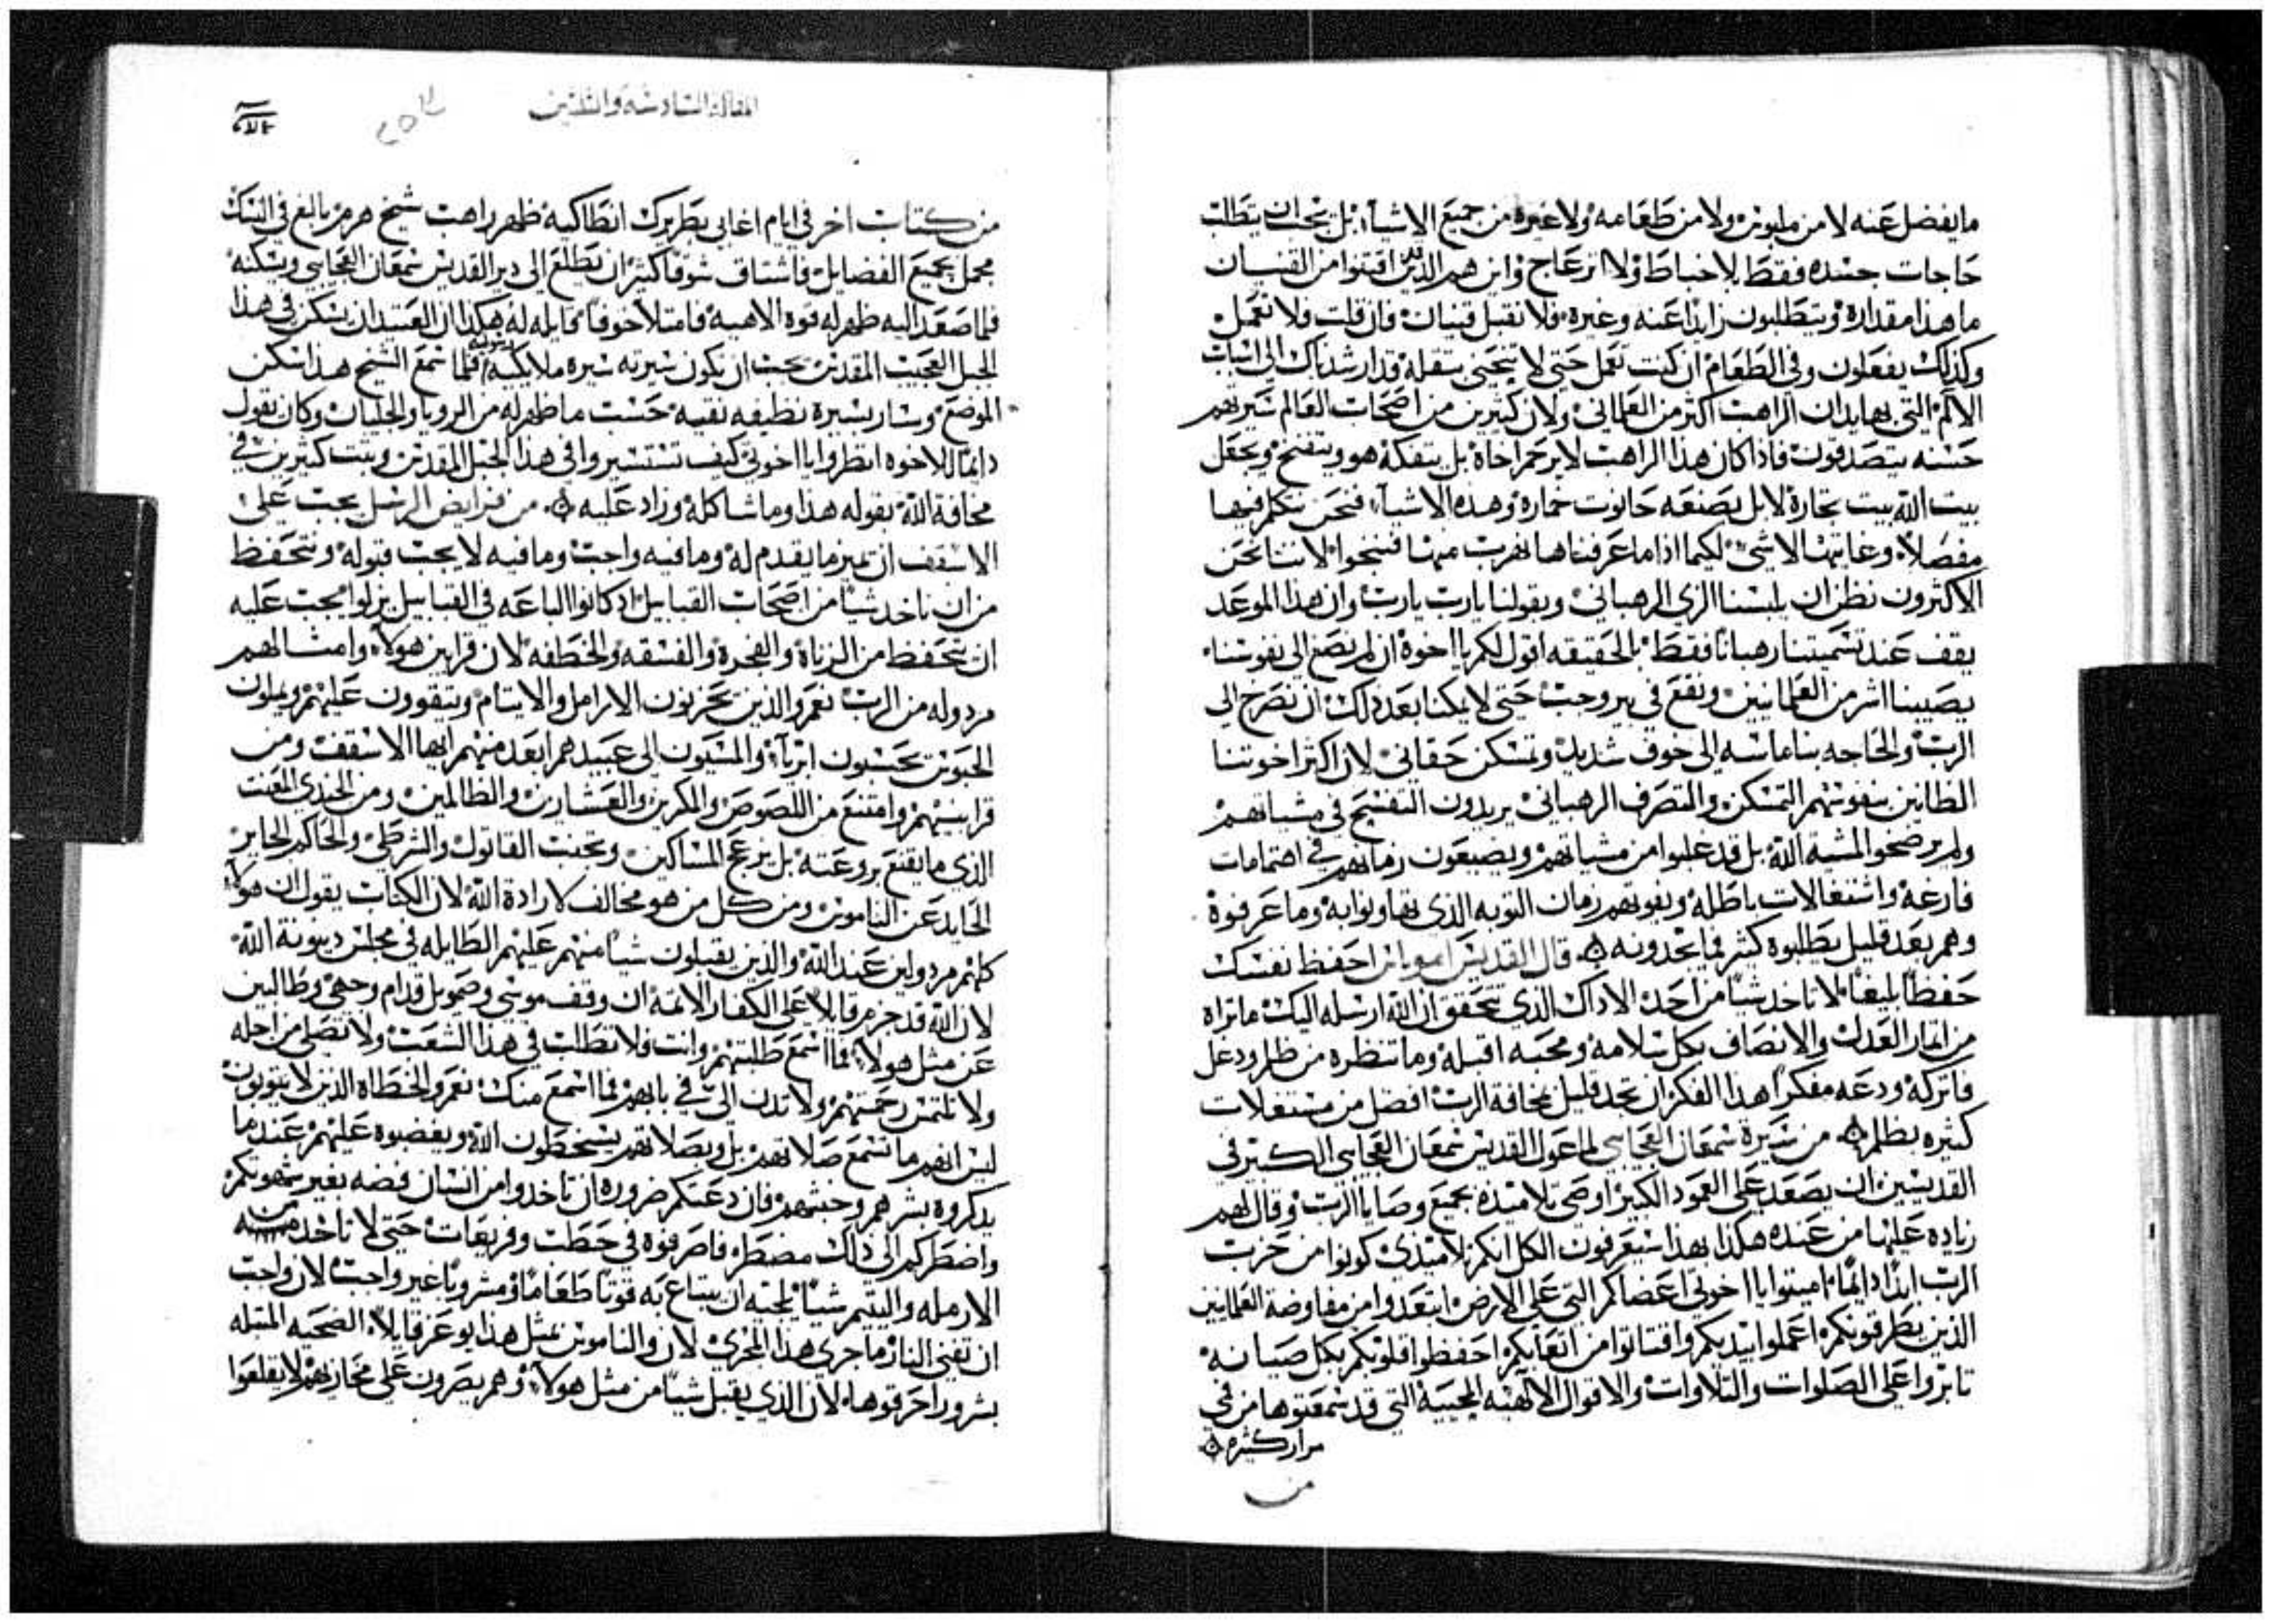 ما يفضل عنه لا من ملبوس ولا من طعامه ولا غيره من جميع الاشياء بل يجب ان يتطلب
حاجات جسده فقط بلا خباط ولا انزعاج واين هم الذين اقتنوا من القنيان
ما هذا مقداره ويتطلبون زايدا عنه وغيره فلا نقبل قنيان فان قلت ولا نعمل
وكذلك يفعلون وفي الطعام ان كنت تعمل حتى لا
الالم التي بها يدان الراهب اكثر من العلماني ولان كثيرين من اصحاب العالم سيرتهم
حسنه يتصدقون فاذا كان هذا الراهب لا يرحم اخاه بل يتفكه هو ويتفنخ ويجعل
بيت الله بيت تجارة لا بل يصنعه حانوت خمارة وهذه الاشياء فنحن نتكلم فيها
مفصلا وغايتها لا شي لكيما اذا ما عرفناها نهرب منها فننجوا لاننا نحن
الاكثرون نظن ان يلبسنا الزي الرهباني وبقولنا يارب يارب وان هذا الموعد
يقف عند تسميتنا رهبانا فقط بالحقيقه اقول لكم يا اخوة ان لم نصغ الى نفوسنا
يصيبنا اشر من العلمانيين ونقع في بير وجب حتى لا يمكنا بعد ذلك ان نصرخ الى
الرب والحاجه بنا ماسه الى خوف شديد وتمسكن حقاني لان اكثر اخوتنا
الظانين بنفوسهم التمسكن والتصرف الرهباني يريدون التفسح في مشياتهم
ولم يرضخوا لمشية الله بل قد غلبوا من مشياتهم ويضيعون زمانهم في اهتمامات
فارغة واشتغالات باطله ويفوتهم زمان التوبه الذي تهاونوا به وما عرفوة
وهم بعد قليل يطلبوه كثير فما يجدونه قال القديس احفظ نفسك
حفظا بليغا لا تاخد شيا من احد الا ذاك الذي تتحقق ان الله ارسله اليك ما تراه
من اثمار العدل والانصاف بكل سلامة ومحبه اقبله وما تنظره من ظلم ودغل
فاتركه ودعه مفكرا هذا الفكر ان يجد قليل بمخافة الرب افضل من مستغلات
كثيره بظلم من سيرة سمعان العجايبي لما عول القديس سمعان العجايبي الكبير في
القديسين ان يصعد على العمود الكبير اوصى تلاميذه بجميع وصايا الرب وقال لهم
زياده عليها من عنده هكذا بهذا سيعرفون الكل انكم تلاميذي كونوا من حزب
الرب ابدا دايما اميتوا يا اخوتي اعضاكم التي على الارض ابتعدوا من مفاوضة العلمانيين
الذين يطرقونكم اعملوا بيديكم واقتاتوا من اتعابكم احفظوا قلوبكم بكل صيانة
ثابروا على الصلوات والتلاوات والاقوال الالهيه المحييه التي قد سمعتوها من في
مرار كثيره
من
المقالة السادسة والثلثين
من كتاب اخر في ايام اغابي بطريرك انطاكيه ظهر راهب شيخ هرم بالغ في النسك
مجمل بجميع الفضايل فاشتاق شوقا كثيرا ان يطلع الى دير القديس سمعان العجايبي ويسكنه
فلما صعد اليه ظهر له قوه الاهيه فامتلا خوفا قايله له هكذا ان العتيد ان يسكن في هذا
الجبل العجيب المقدس يجب ان تكون سيرته سيره ملايكيه فلما سمع الشيخ هذا سكن
الموضع وسار بسيرة نظيفه نقيه حسب ما ظهر له من الرويا والجليان وكان يقول
دايما للاخوه انظروا يا اخوتي كيف تستسيروا في هذا الجبل المقدس ويثبت كثيرين في
مخافة الله بقوله هذا وما شاكله وزاد عليه من فرايض الرسل يجب على
الاسقف ان يميز ما يقدم له وما فيه واجب وما فيه لا يجب قبوله ونتحفظ
من ان ناخد شيا من اصحاب القبايل اذ كانوا الباعه في القبايل نزلوا يجب عليه
ان يتحفظ من الزناة والفجرة والفسقه والخطفه لان قرابين هولاء وامثالهم
مردوله من الرب نعم والذين يحزنون الارامل والايتام ويتقوون عليهم ويملون
الحبوس بحبسون ابرياء والمسيون الى عبيدهم ابعد منهم ايها الاسقف ومن
قرابينهم وامتنع من اللصوص والمكرين والعشارين والظالمين ومن الجندي المعنت
الذي ما يقنع بروعته بل يزعج المساكين وتجنب القاتول والشرطي والحاكم الجاير
الحايد عن الناموس ومن كل من هو مخالف لارادة الله لان الكتاب يقول ان هولاء
كلهم مردولين عند الله والذين يقبلون شيا منهم عليهم الطايله في مجلس دينونة الله
لان الله قد جزم قايلا على الكفار الاثمه ان وقف موسى وصمويل قدام وجهي وطالبين
عن مثل هولاء فما اسمع طلبتهم وانت فلا تطلب في هذا الشعب ولا تصلي من اجله
ولا تلتمس رحمتهم ولا تدن الي في بابهم فما اسمع منك نعم والخطاه الذين لا يتوبون
ليس انهم ما تسمع صلاتهم بل وبصلاتهم يسخطون الله ويغضبوه عليهم عندما
يدكروه بشرهم وخبثهم فان دعتكم ضروره ان تاخدوا من انسان فضه بغير شهوتكم
واضطركم الى ذلك مضطر فاصرفوه في حطب وفريعات حتى لا تاخد منه
الارمله واليتيم شيا يلجيه ان يبتاع به قوتا طعاما او مشروبا غير واجب لان واجب
ان تفنى النار ما جرى هذا المجرى لان والناموس بمثل هذا يوعز قايلا الضحيه المتبله
بشرور احرقوها لان الذي يقبل شيا من مثل هولاء وهم يصرون على مخازيهم لا يقلعوا